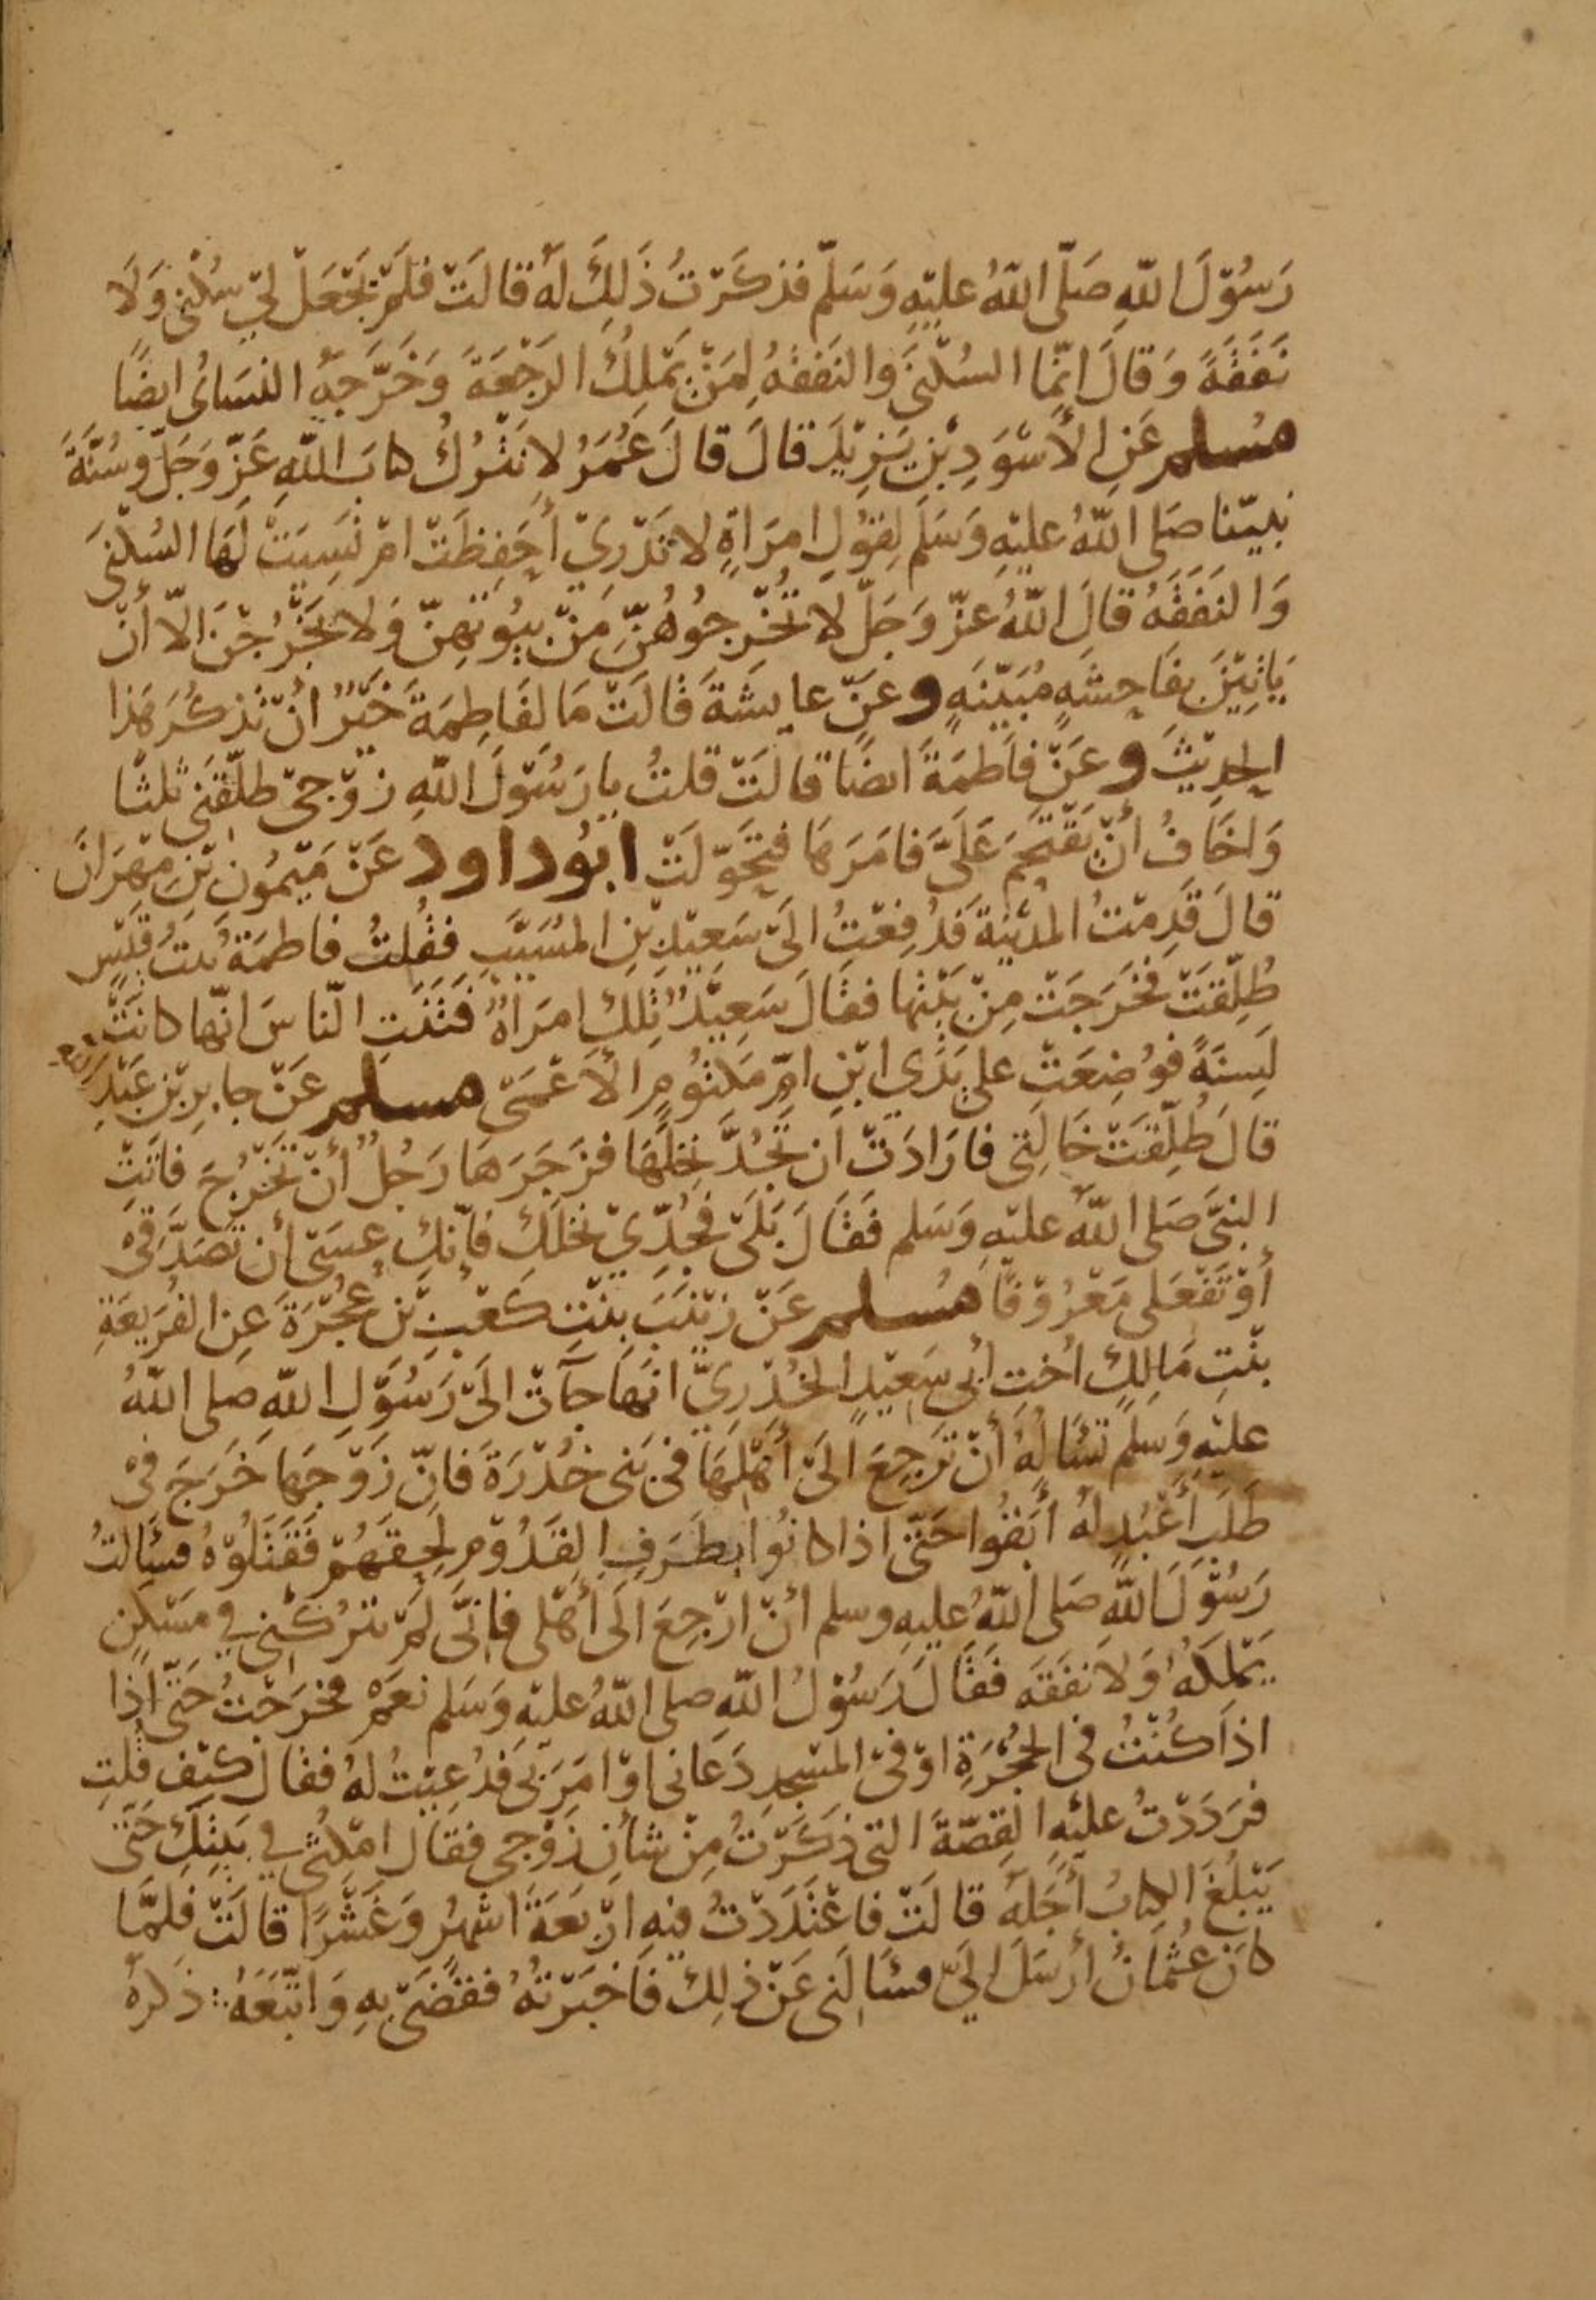 رَسُوْلَ اللّهِ صَلّى اللّهُ عليْهِ وَسَلّم فذكَرْتُ ذَلِكَ لَهُ قالَتْ فلَمْ يَجْعَلْ لِيْ سُكْنى وَلَا
نَفَقَةً وَقالَ انّمَا السُكْنىَ وَالنَفقَهُ لِمَنْ يَمْلِكُ الرَجْعَةَ وَخَرَّجَهُ النسَائى ايضًا
مسلم عَنِ الأَسْوَدِ بْنِ يَزِيْدَ قالَ قالَ عُمَرُ لا نَتْرُكُ كتابَ اللّهِ عَزّ وَجَلّ وسُنَّةَ
نبيّنا صَلى اللّهُ عليْهِ وَسَلم لِقوْلِ امرَاةٍ لا نَدْرِيْ أحَفِظَتْ امْ نَسِيَتْ لَهَا السُكْنىَ
وَالنفَقَهُ قالَ اللّهُ عزّ وَجَلّ لا تُخْرِجُوْهُنّ مِنْ بيُوْتِهِنّ وَلا يَخْرُجْنَ الّا أنْ
يَاتِيْنَ بفَاحِشَهٍ مُبَيّنَهٍ وعَنْ عايشَةَ قالَتْ مَا لفَاطِمَةَ خَيْرٌ انْ تذكُرَ هَذا
الحدِيْثَ وعَنْ فاَطمَةَ ايضًا قالَتْ قلتُ يا رَسُوْلَ اللّهِ زوْجىْ طلّقَنى ثلثًا
وَاخَافُ أنْ يَقْتَحِمَ عَلَىَّ فامَرَهَا فتَحَوّلَتْ ابُو داود عَنْ مَيْمُون بْنِ مِهْرَانَ
قالَ قَدِمْتُ المدِيْنةَ فَدُفِعْتُ الَىْ سَعِيْدِ بْنِ المُسَيّبِ فقُلتُ فاطمَةَ بنْتُ قَيْسٍ
طُلِّقَتْ فَخرَجَتْ مِنْ بَيْتِهَا فقَالَ سَعِيْدٌ تِلكَ امرَاةٌ فَتنَتِ النّاسَ انّها كانَتْ
لَسِنَةً فوُضِعَتْ على يَدَي ابْنِ امِّ مَكتُومٍ الأَعْمَى مسلم عَنْ جابِرِ بْنِ عَبْدِ اللهِ
قالَ طُلِّقَتْ خَالَتِى فارَادَتْ ان تَجُدَّ نَخلَهَا فزَجَرَهَا رَجُلٌ أنْ تَخْرُجَ فاتَتِ
النبىَّ صَلى اللّهُ عليْهِ وَسَلم فَقَالَ بَلَىْ فجُدِّيْ نخلَكِ فإنّكِ عسَى أن تَصَدَّقِىْ
أوْ تَفْعَلى مَعْرُوْفًا مُسلم عَنْ زيْنَبَ بِنْتِ كَعْبِ بْن عُجْرَةَ عنِ الفُرَيعَةِ
بنْتِ مَالِكٍ اخْتِ أبى سَعِيْدٍ الخُدْرِىِّ انهَا جآتْ الَىْ رَسُوْلِ اللّهِ صَلى اللّهُ
عليْهِ وَسلّم تسْألهُ أنْ تَرْجِعَ الَىْ أهْلِهَا فىْ بَنى خُدْرَةَ فانّ زَوْجَها خَرَجَ فىْ
طَلَبِ أَعْبُدٍ لهُ أبَقُوا حَتّى اذا كانُوا بطَرَفِ القَدُوْمِ لَحِقَهُمْ فَقَتَلُوْهُ فسَأَلتُ
رَسُوْلَ اللّهِ صَلى اللّهُ عليهِ وسلم أنْ ارْجِعَ الَى أهْلى فإنّى لَمْ يتْرُكْنى في مَسْكنٍ
يَمْلِكهُ وَلا نفَقَه فَقَالَ رَسُوْلُ اللّهِ صلى اللّهُ عليْهِ وَسَلم نعَمْ فخرَجْتُ حَتّى اذا
اذا كُنْتُ فى الحُجْرَةِ اوْ فىْ المَسْجِدِ دَعَانى اوْ امَرَ بىْ فَدُعِيْتُ لهُ فقال كيْفَ قلتِ
فرَدَدْتُ عليْهِ القِصّةَ التى ذكَرْتُ مِنْ شأنِ زَوْجى فقال امْكثى في بَيتِكِ حَتّى
يَبْلُغَ الكتابُ أجَلهُ قالَتْ فاعْتَدَدْتُ فيْهِ ارْبعَةَ اشهُر وَعَشْرًا قالَتْ فلمَّا
كانَ عُثمَانُ أرْسَلَ الَيّ فسَألَنى عَنْ ذلِكَ فَاخْبَرْتهُ فقضَىْ بِهِ وَاتّبَعَهُ ذكرَهُ